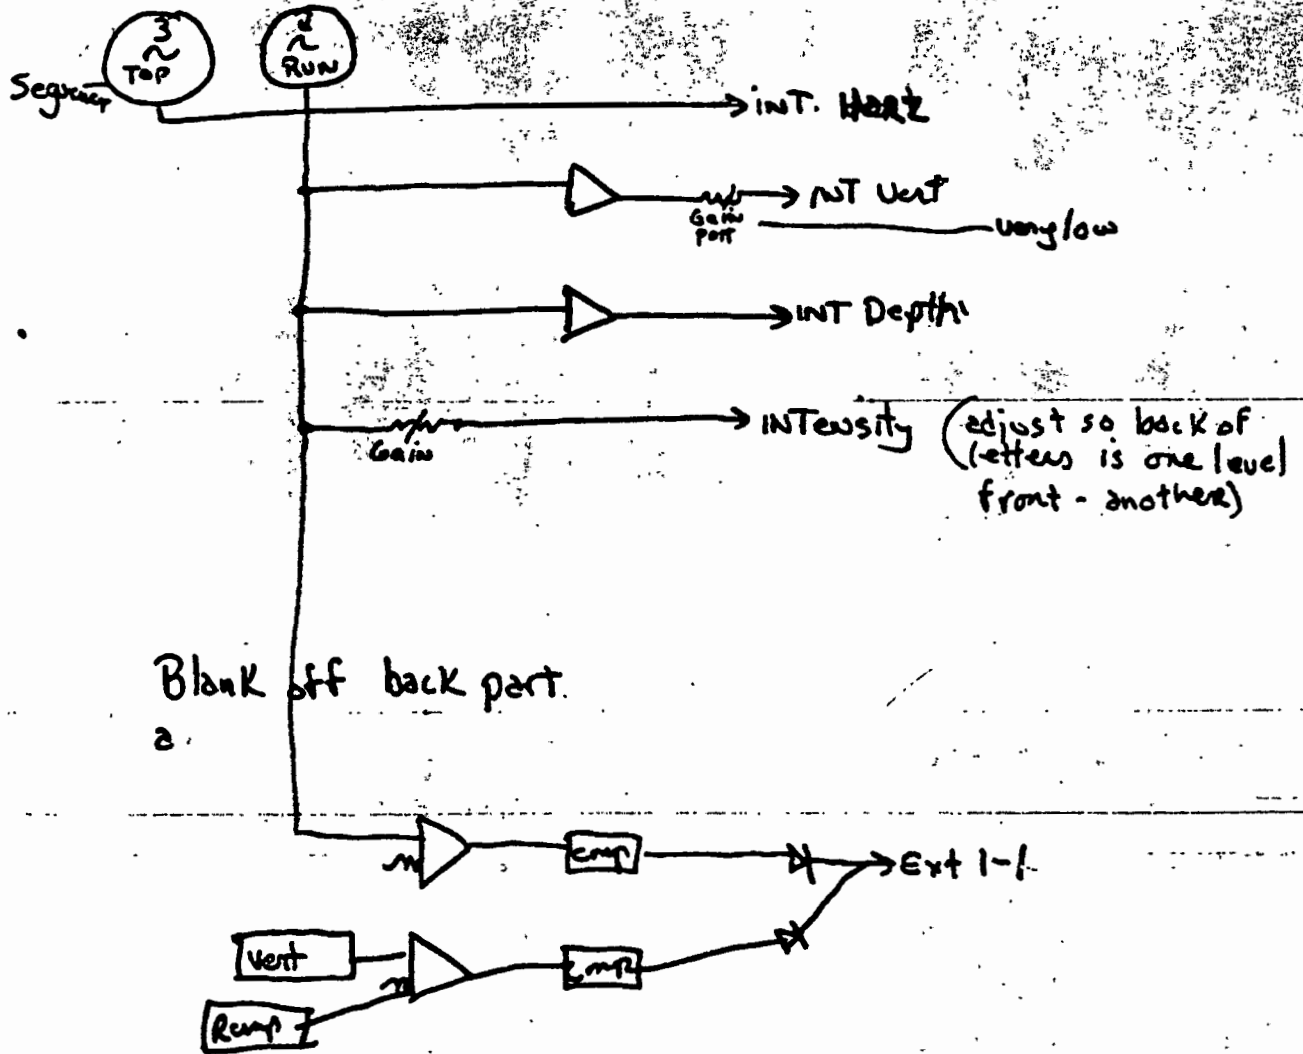 3
~
TOP
2
~
RUN
Sequencer
INT. Horz
INT Vert
Gain
Pot
very low
INT Depth
INTensity (adjust so back of
letters is one level
front - another)
Gain
Blank off back part.
a.
cmp
Ext 1-1
Vert
cmp
Ramp